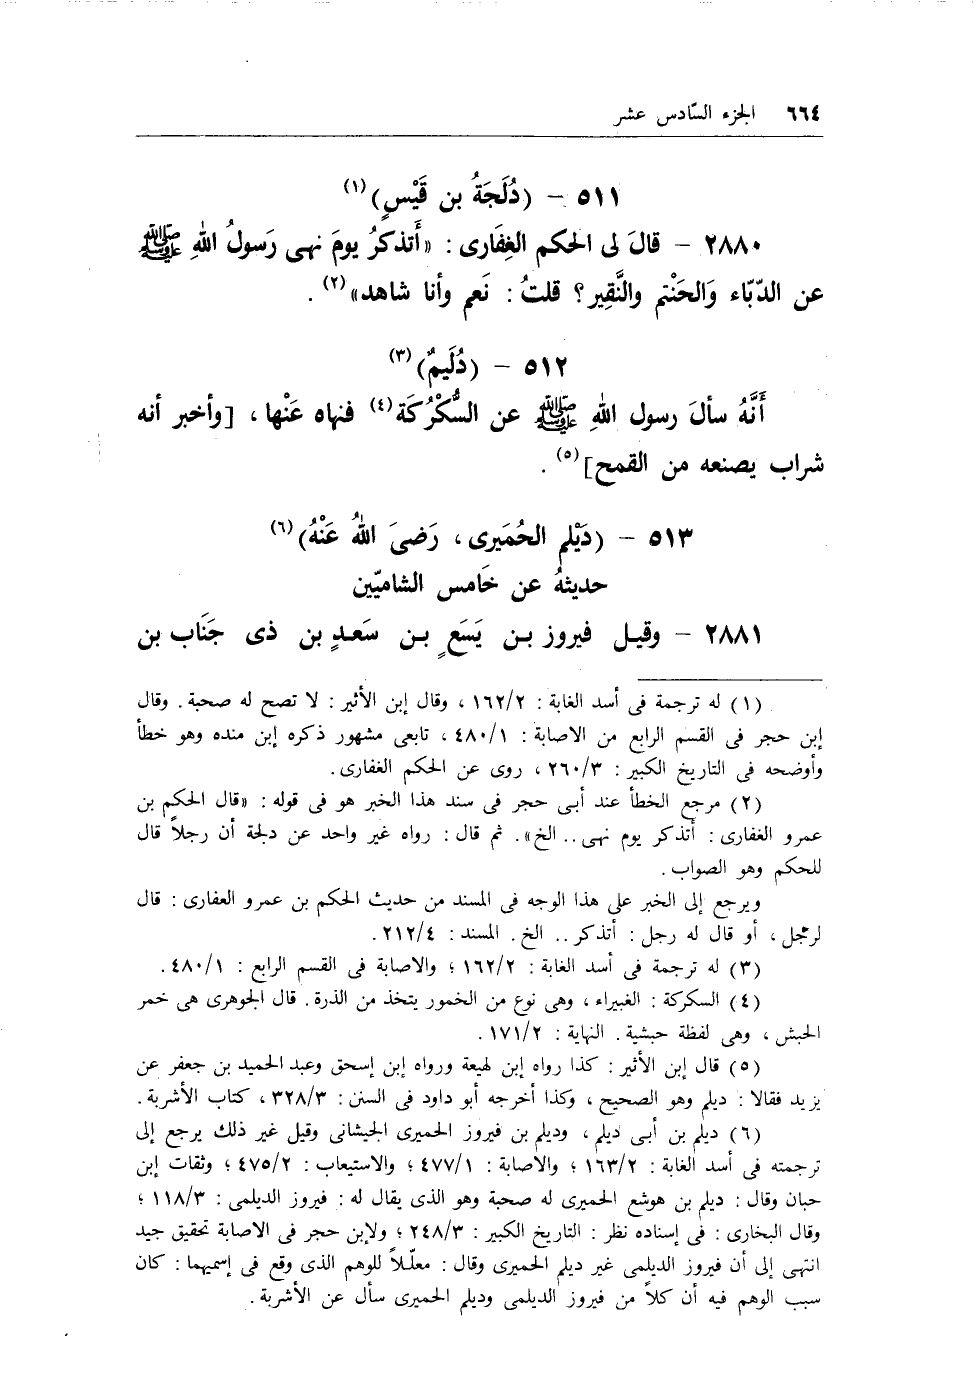 ٦٦٤ الجزء السّادس عشر
٥١١ – (دُلَجَةُ بن قَيْسٍ)(١)
٢٨٨٠ – قالَ لى الحكم الغِفَارى : «أَتذكرُ يومَ نهى رَسولُ اللهِ ﷺ
عن الدّبّاء وَالحَنْتم والنَّقِير؟ قلتُ : نَعم وأنا شاهد»(٢) .
٥١٢ – (دُلَيمٌ)(٣)
أَنَّهُ سألَ رسول اللهِ ﷺ عن السُّكْرُكَة(٤) فنهاه عَنْها ، [وأخبر أنه
شراب يصنعه من القمح](٥) .
٥١٣ – (دَيْلم الحُمَيرى ، رَضىَ اللهُ عَنْهُ)(٦)
حديثهُ عن خَامس الشاميّين
٢٨٨١ – وقيل فيروز بن يَسَعٍ بن سَعدٍ بن ذى جَنَاب بن
(١) له ترجمة فى أسد الغابة : ١٦٢/٢ ، وقال إبن الأثير : لا تصح له صحبة . وقال
إبن حجر فى القسم الرابع من الاصابة : ٤٨٠/١ ، تابعى مشهور ذكره إبن منده وهو خطأ
وأوضحه فى التاريخ الكبير : ٢٦٠/٣ ، روى عن الحكم الغفارى .
(٢) مرجع الخطأ عند أبى حجر فى سند هذا الخبر هو فى قوله : «قال الحكم بن
عمرو الغفارى : أتذكر يوم نهى .. الخ». ثم قال : رواه غير واحد عن دلجة أن رجلاً قال
للحكم وهو الصواب .
ويرجع إلى الخبر على هذا الوجه فى المسند من حديث الحكم بن عمرو العفارى : قال
لرجل ، أو قال له رجل : أتذكر .. الخ . المسند : ٢١٢/٤ .
(٣) له ترجمة فى أسد الغابة : ١٦٢/٢ ؛ والاصابة فى القسم الرابع : ٤٨٠/١ .
(٤) السكركة : الغبيراء ، وهى نوع من الخمور يتخذ من الذرة . قال الجوهرى هى خمر
الحبش ، وهى لفظة حبشية . النهاية : ١٧١/٢ .
(٥) قال إبن الأثير : كذا رواه إبن لهيعة ورواه إبن إسحق وعبد الحميد بن جعفر عن
يزيد فقالا : ديلم وهو الصحيح ، وكذا أخرجه أبو داود فى السنن : ٣٢٨/٣ ، كتاب الأشربة .
(٦) ديلم بن أبى ديلم ، وديلم بن فيروز الحميرى الجيشانى وقيل غير ذلك يرجع إلى
ترجمته فى أسد الغابة : ١٦٣/٢ ؛ والاصابة : ٤٧٧/١ ؛ والاستيعاب : ٤٧٥/٢ ؛ وثقات إبن
حبان وقال : ديلم بن هوشع الحميرى له صحبة وهو الذى يقال له : فيروز الديلمى : ١١٨/٣ ؛
وقال البخارى : فى إسناده نظر : التاريخ الكبير : ٢٤٨/٣ ؛ ولإبن حجر فى الاصابة تحقيق جيد
انتهى إلى أن فيروز الديلمى غير ديلم الحميرى وقال : معلّلاً للوهم الذى وقع فى إسميهما : كان
سبب الوهم فيه أن كلاً من فيروز الديلمى وديلم الحميرى سأل عن الأشربة .